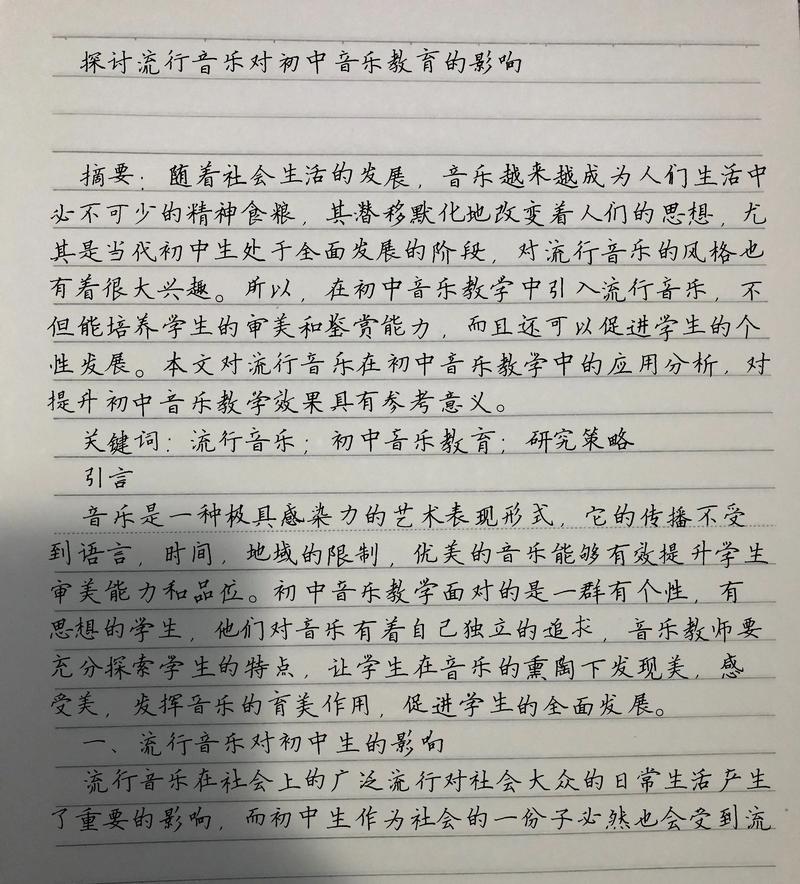 探讨流行音乐对初中音乐教育的影响
摘要：随着社会生活的发展，音乐越来越成为人们生活中
必不可少的精神食粮，其潜移默化地改变着人们的思想，尤
其是当代初中生处于全面发展的阶段，对流行音乐的风格也
有着很大兴趣。所以，在初中音乐教学中引入流行音乐，不
但能培养学生的审美和鉴赏能力，而且还可以促进学生的个
性发展。本文对流行音乐在初中音乐教学中的应用分析，对
提升初中音乐教学效果具有参考意义。
关键词：流行音乐；初中音乐教育；研究策略
引言
音乐是一种极具感染力的艺术表现形式，它的传播不受
到语言，时间，地域的限制，优美的音乐能够有效提升学生
审美能力和品位。初中音乐教学面对的是一群有个性，有
思想的学生，他们对音乐有着自己独立的追求，音乐教师要
充分探索学生的特点，让学生在音乐的熏陶下发现美，感
受美，发挥音乐的育美作用，促进学生的全面发展。
一、流行音乐对初中生的影响
流行音乐在社会上的广泛流行对社会大众的日常生活产生
了重要的影响，而初中生作为社会的一份子必然也会受到流